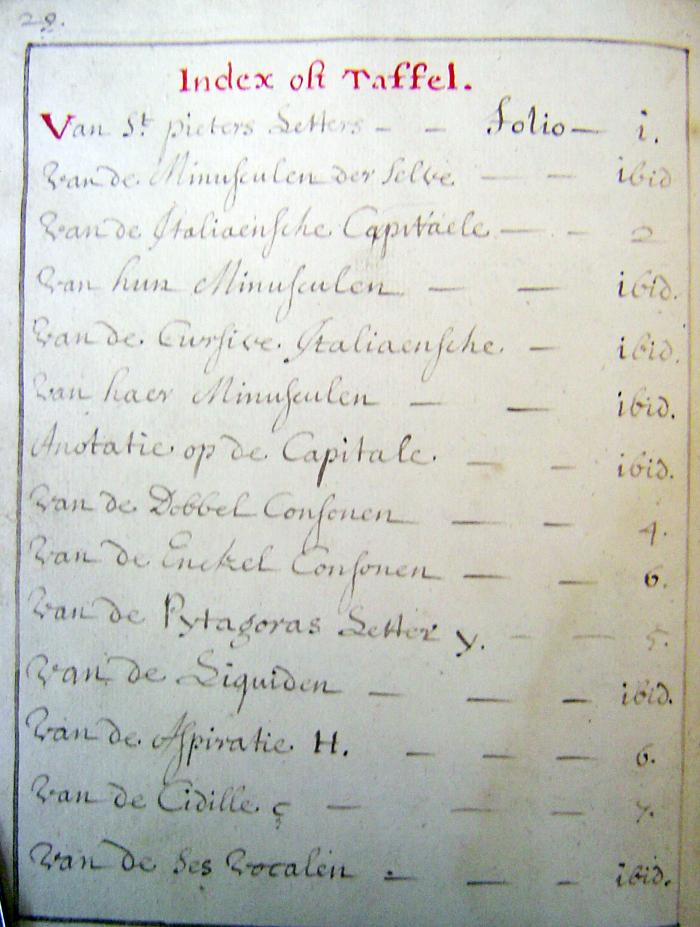 29.
Index oft Taffel.
Van St pieters Letters – – Folio – i.
Van de Minusculen der Selve – – ibid
Van de Italiaensche Capitaele – – 2
Van hun Minusculen – – ibid.
Van de Cursive Italiaensche. – ibid.
Van haer Minusculen – – ibid.
Anotatie op de Capitale. – – ibid.
Van de Dobbel Consonen – – 4.
Van de Enckel Consonen – – 6.
Van de Pytagoras Letter y. – – 5.
Van de Liquiden – – – ibid.
Van de Aspiratie H. – – – 6.
Van de Cidille ç – – – 7.
Van de ses vocalen – – – ibid.